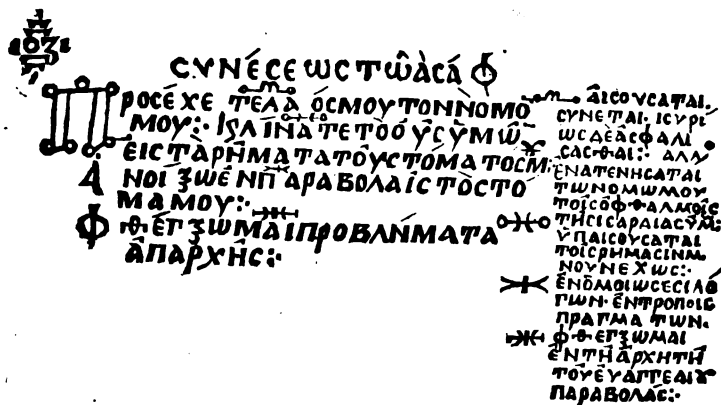 ΟΖ
CΥΝΈCΕωCΤῶἈCΆΦ
ΠΡΟCΈΧΕΤΕΛΑΌCΜΟΥΤΟΝΝΌΜΟ
ΜΟΥ:· ΚΛΊΝΑΤΕΤΟΟΥ͂CΥΜῶ
ΕΙCΤᾺΡΉΜΑΤΑΤΟΥ͂CΤΌΜΑΤΟCΜ
ΑΝΟΙΞωΕΝΠΑΡΑΒΟΛΑΙCΤΟCΤΟ
ΜΑΜΟΥ:·
ΦΘΕΓΞωΜΑΙΠΡΟΒΛΉΜΑΤΑ
ἈΠΑΡΧΗ͂C:·
ἈΚΟΥCΑΤΑΙ.
CΥΝΕΤΑΙ. ΚΥΡΙ
ωCΔΕΑCΦΑΛΙ
CΑCΘΑΙ: ΑΛΛ
ΕΝΑΤΕΝΗCΑΤΑΙ
ΤωΝΟΜωΜΟΥ
ΤΟΙCΟΦΘΑΛΜΟΙC
ΤΗCΚΑΡΔΙΑCΥΜ:
ΥΠΑΚΟΥCΑΤΑΙ
ΤΟΙCΡΗΜΑCΙΝΜ
ΝΟΥΝΕΧωC:·
ΕΝΟΜΟΙωCΕCΙΛΟ
ΓωΝ· ΕΝΤΡΟΠΟΙC
ΠΡΑΓΜΑΤωΝ.
ΦΘΕΓΞωΜΑΙ
ΕΝΤΗΑΡΧΗΤΗ
ΤΟΥΕΥΑΓΓΕΛΙΟΥ
ΠΑΡΑΒΟΛΑC:·